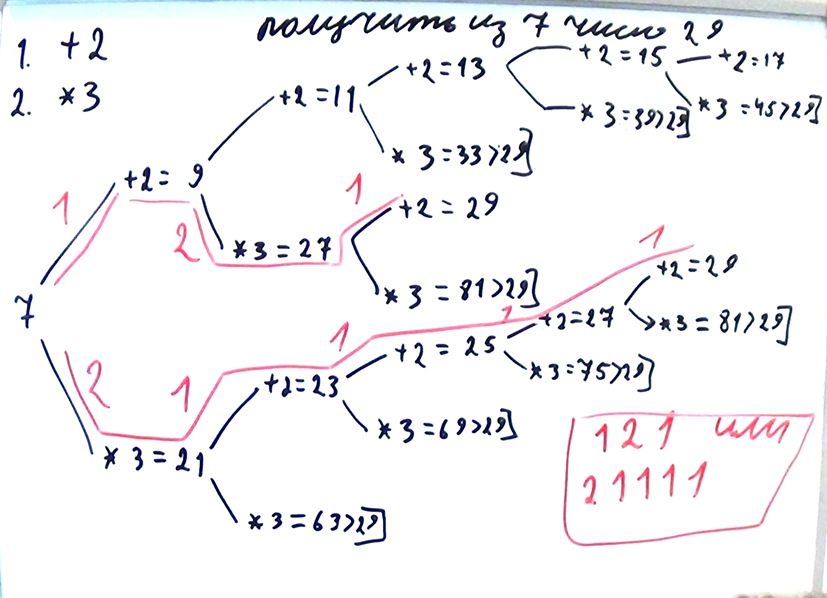 получить из 7 число 29
1. +2
2. *3
+2 = 15
+2 = 17
+2 = 13
+2 = 11
* 3 = 39>29]
* 3 = 45>29]
* 3 = 33>29]
+2 = 9
1
1
+2 = 29
2
* 3 = 27
1
+2 = 29
* 3 = 81>29]
7
1
+2 = 27
* 3 = 81>29]
1
+2 = 25
2
1
+2 = 23
* 3 = 75>29]
* 3 = 69>29]
1 2 1 или
2 1 1 1 1
* 3 = 21
* 3 = 63>29]